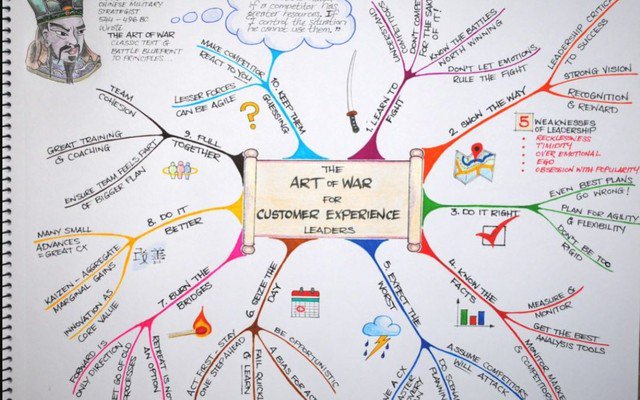 CHINESE MILITARY
STRATEGIST
544 - 496 BC
WROTE
THE ART OF WAR
CLASSIC TEXT &
BATTLE BLUEPRINT
TO PRINCIPLES...
IF A COMPETITOR HAS
GREATER RESOURCES. IF
I CONTROL THE SITUATION
HE CANNOT USE THEM."
THE
ART OF WAR
FOR
CUSTOMER EXPERIENCE
LEADERS
1. LEARN TO
FIGHT
UNDERSTAND
DON'T COMPETE
FOR THE SAKE
OF IT!
KNOW THE BATTLES
WORTH WINNING
DON'T LET EMOTIONS
RULE THE FIGHT
2. SHOW THE WAY
LEADERSHIP CRITICAL
TO SUCCESS
STRONG VISION
RECOGNITION
& REWARD
5 WEAKNESSES
OF LEADERSHIP
• RECKLESSNESS
• TIMIDITY
• OVER EMOTIONAL
• EGO
• OBSESSION WITH POPULARITY
3. DO IT RIGHT
EVEN BEST PLANS
GO WRONG!
PLAN FOR AGILITY
& FLEXIBILITY
DON'T BE TOO
RIGID
4. KNOW THE
FACTS
MEASURE &
MONITOR
GET THE BEST
ANALYSIS TOOLS
MONITOR MARKET
& COMPETITORS
5. EXPECT THE
WORST
ASSUME COMPETITORS
WILL ATTACK
DO SCENARIO
PLANNING
HAVE A CX
6. SEIZE THE
DAY
BE OPPORTUNISTIC
A BIAS FOR
FAIL QUICKLY
& LEARN
ACT FIRST, STAY
ONE STEP AHEAD
7. BURN THE
BRIDGES
RETREAT IS NOT
AN OPTION
LET GO OF OLD
PROCESSES
FORWARD IS
ONLY DIRECTION
8. DO IT
BETTER
MANY SMALL
ADVANCES
= GREAT CX
KAIZEN - AGGREGATE
MARGINAL GAINS
INNOVATION AS
CORE VALUE
9. PULL
TOGETHER
TEAM
COHESION
GREAT TRAINING
& COACHING
ENSURE TEAM FEELS PART
OF BIGGER PLAN
10. KEEP THEM
GUESSING
MAKE COMPETITOR
REACT TO YOU
LESSER FORCES
CAN BE AGILE